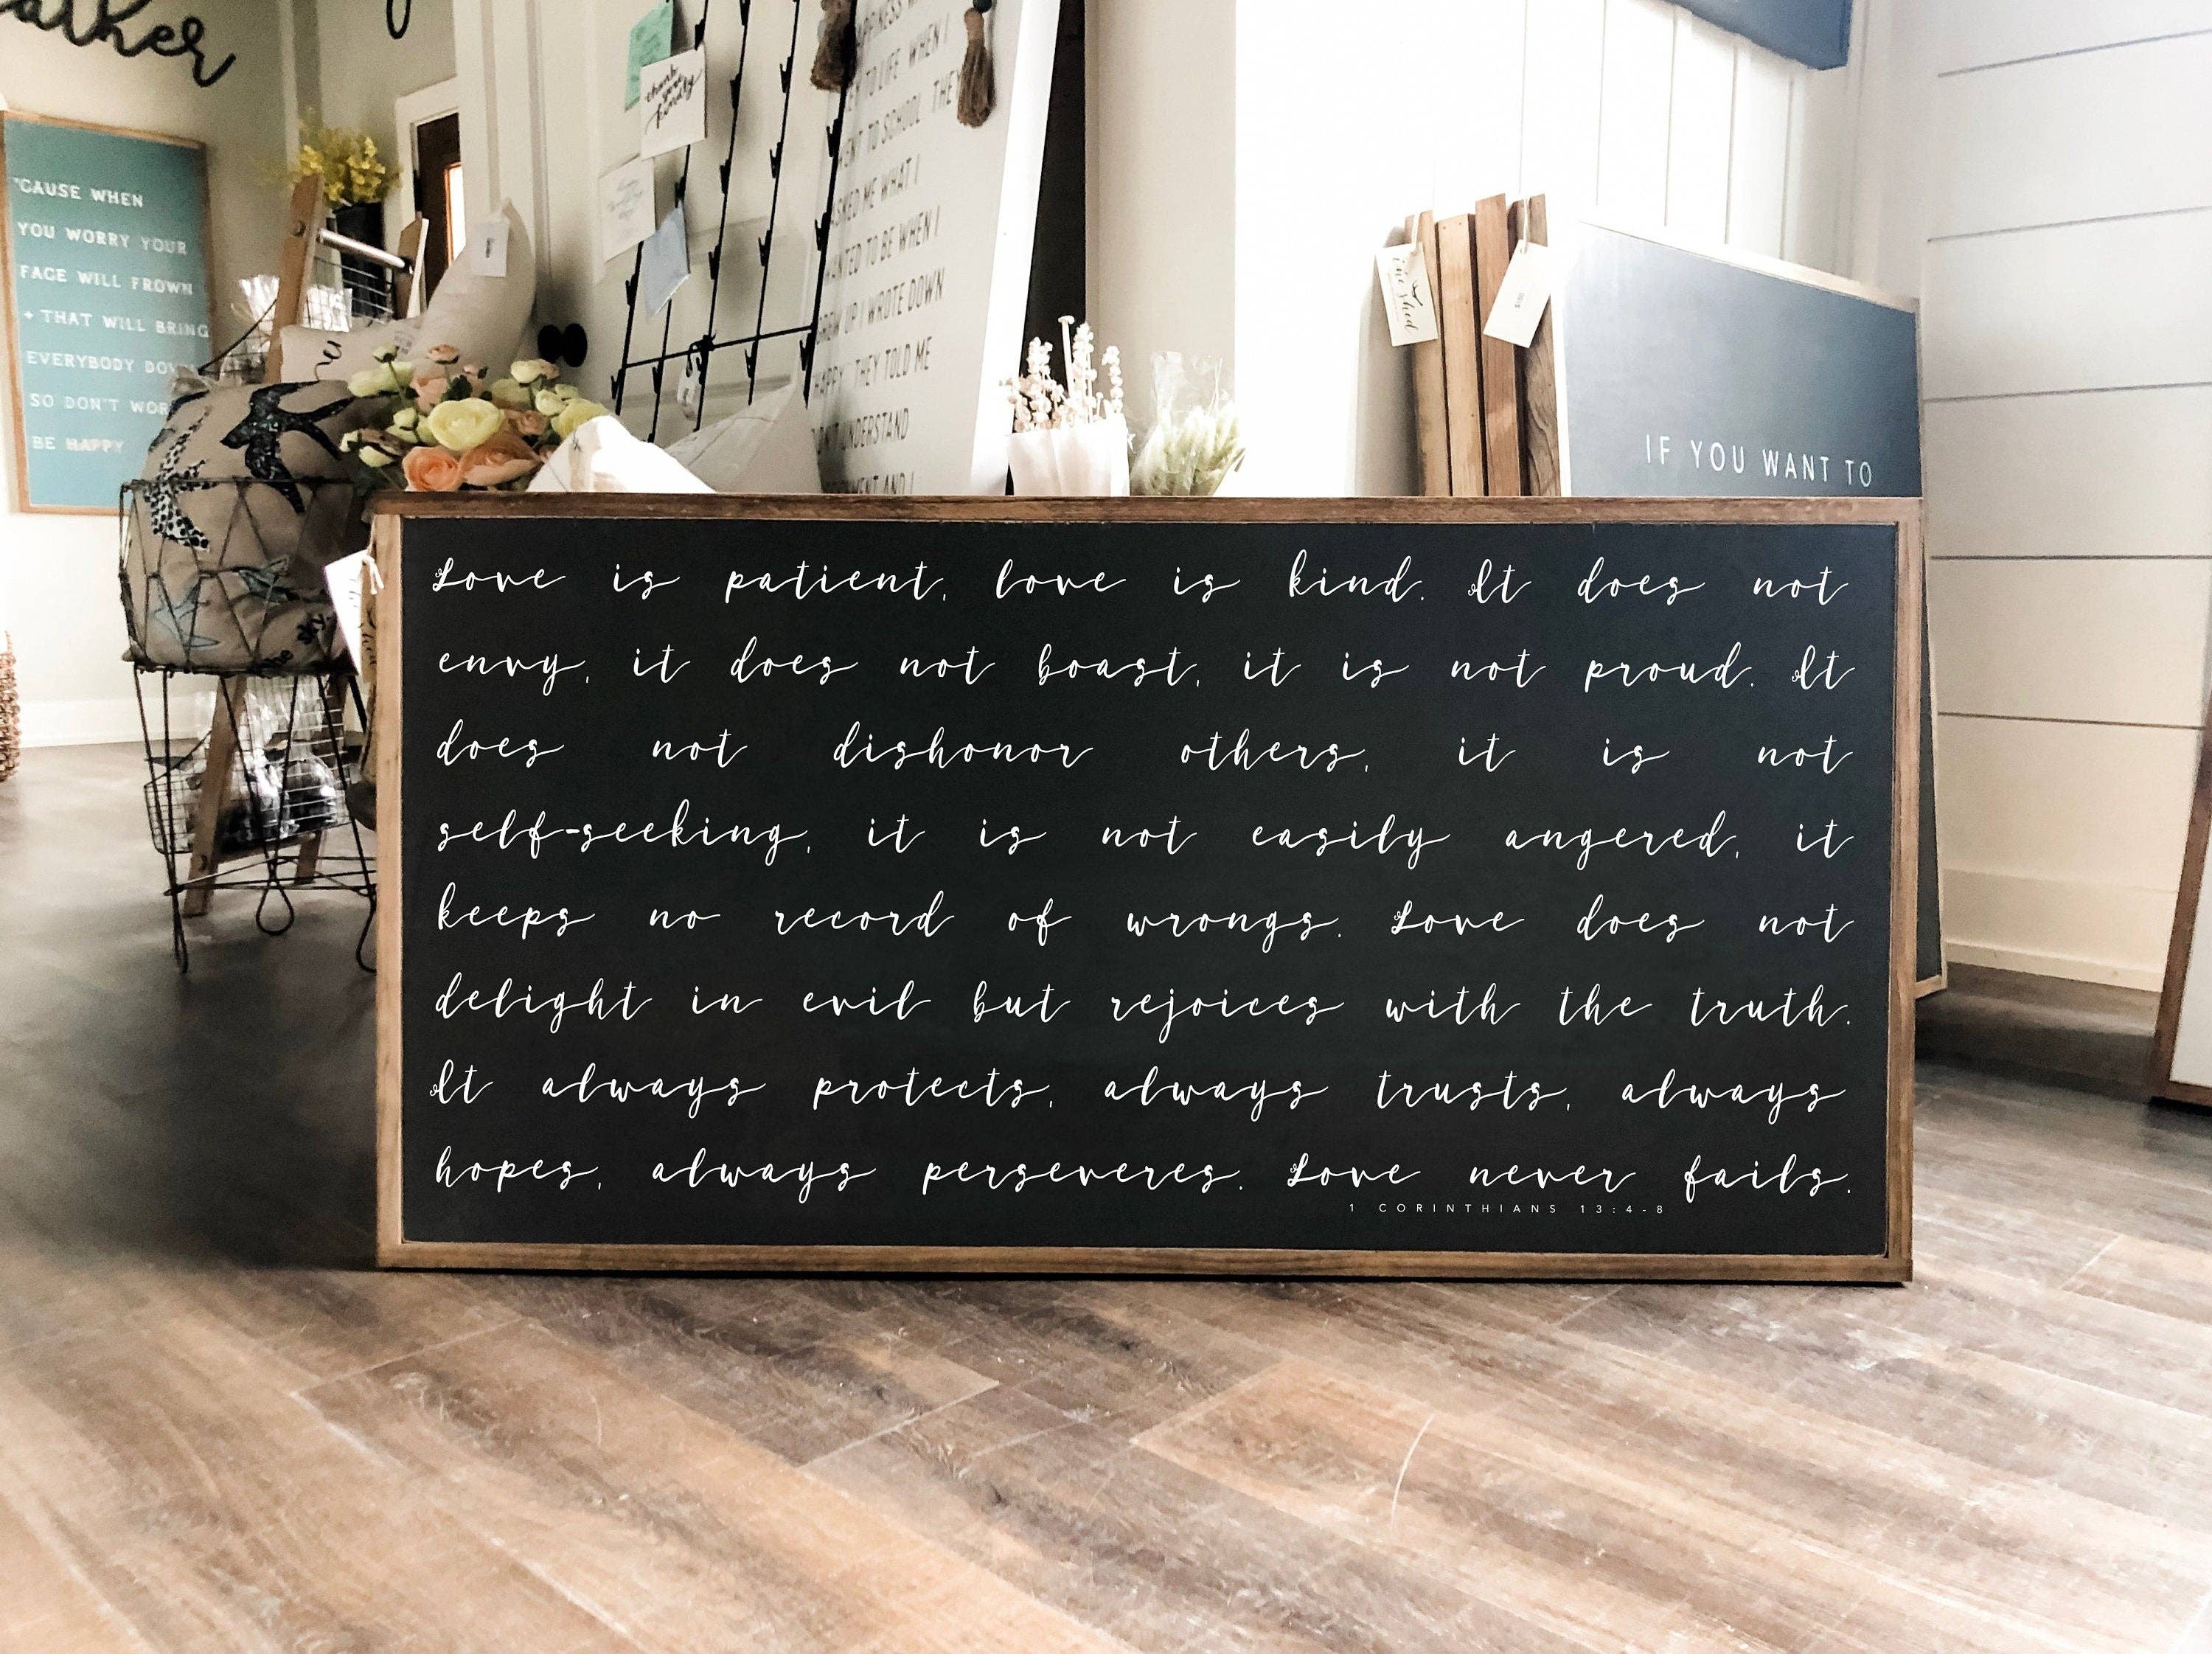 'CAUSE WHEN
YOU WORRY YOUR
FACE WILL FROWN
+ THAT WILL BRING
EVERYBODY
SO DON'T
BE HAPPY
thank
you
kindly
TO LIFE WHEN I
TO SCHOOL THEY
ME WHAT I
TO BE WHEN I
UP I WROTE DOWN
"HAPPY" THEY TOLD ME
AND I
IF YOU WANT TO
Love is patient, love is kind. It does not
envy, it does not boast, it is not proud. It
does not dishonor others, it is not
self-seeking, it is not easily angered, it
keeps no record of wrongs. Love does not
delight in evil but rejoices with the truth.
It always protects, always trusts, always
hopes, always perseveres. Love never fails.
1 CORINTHIANS 13:4-8